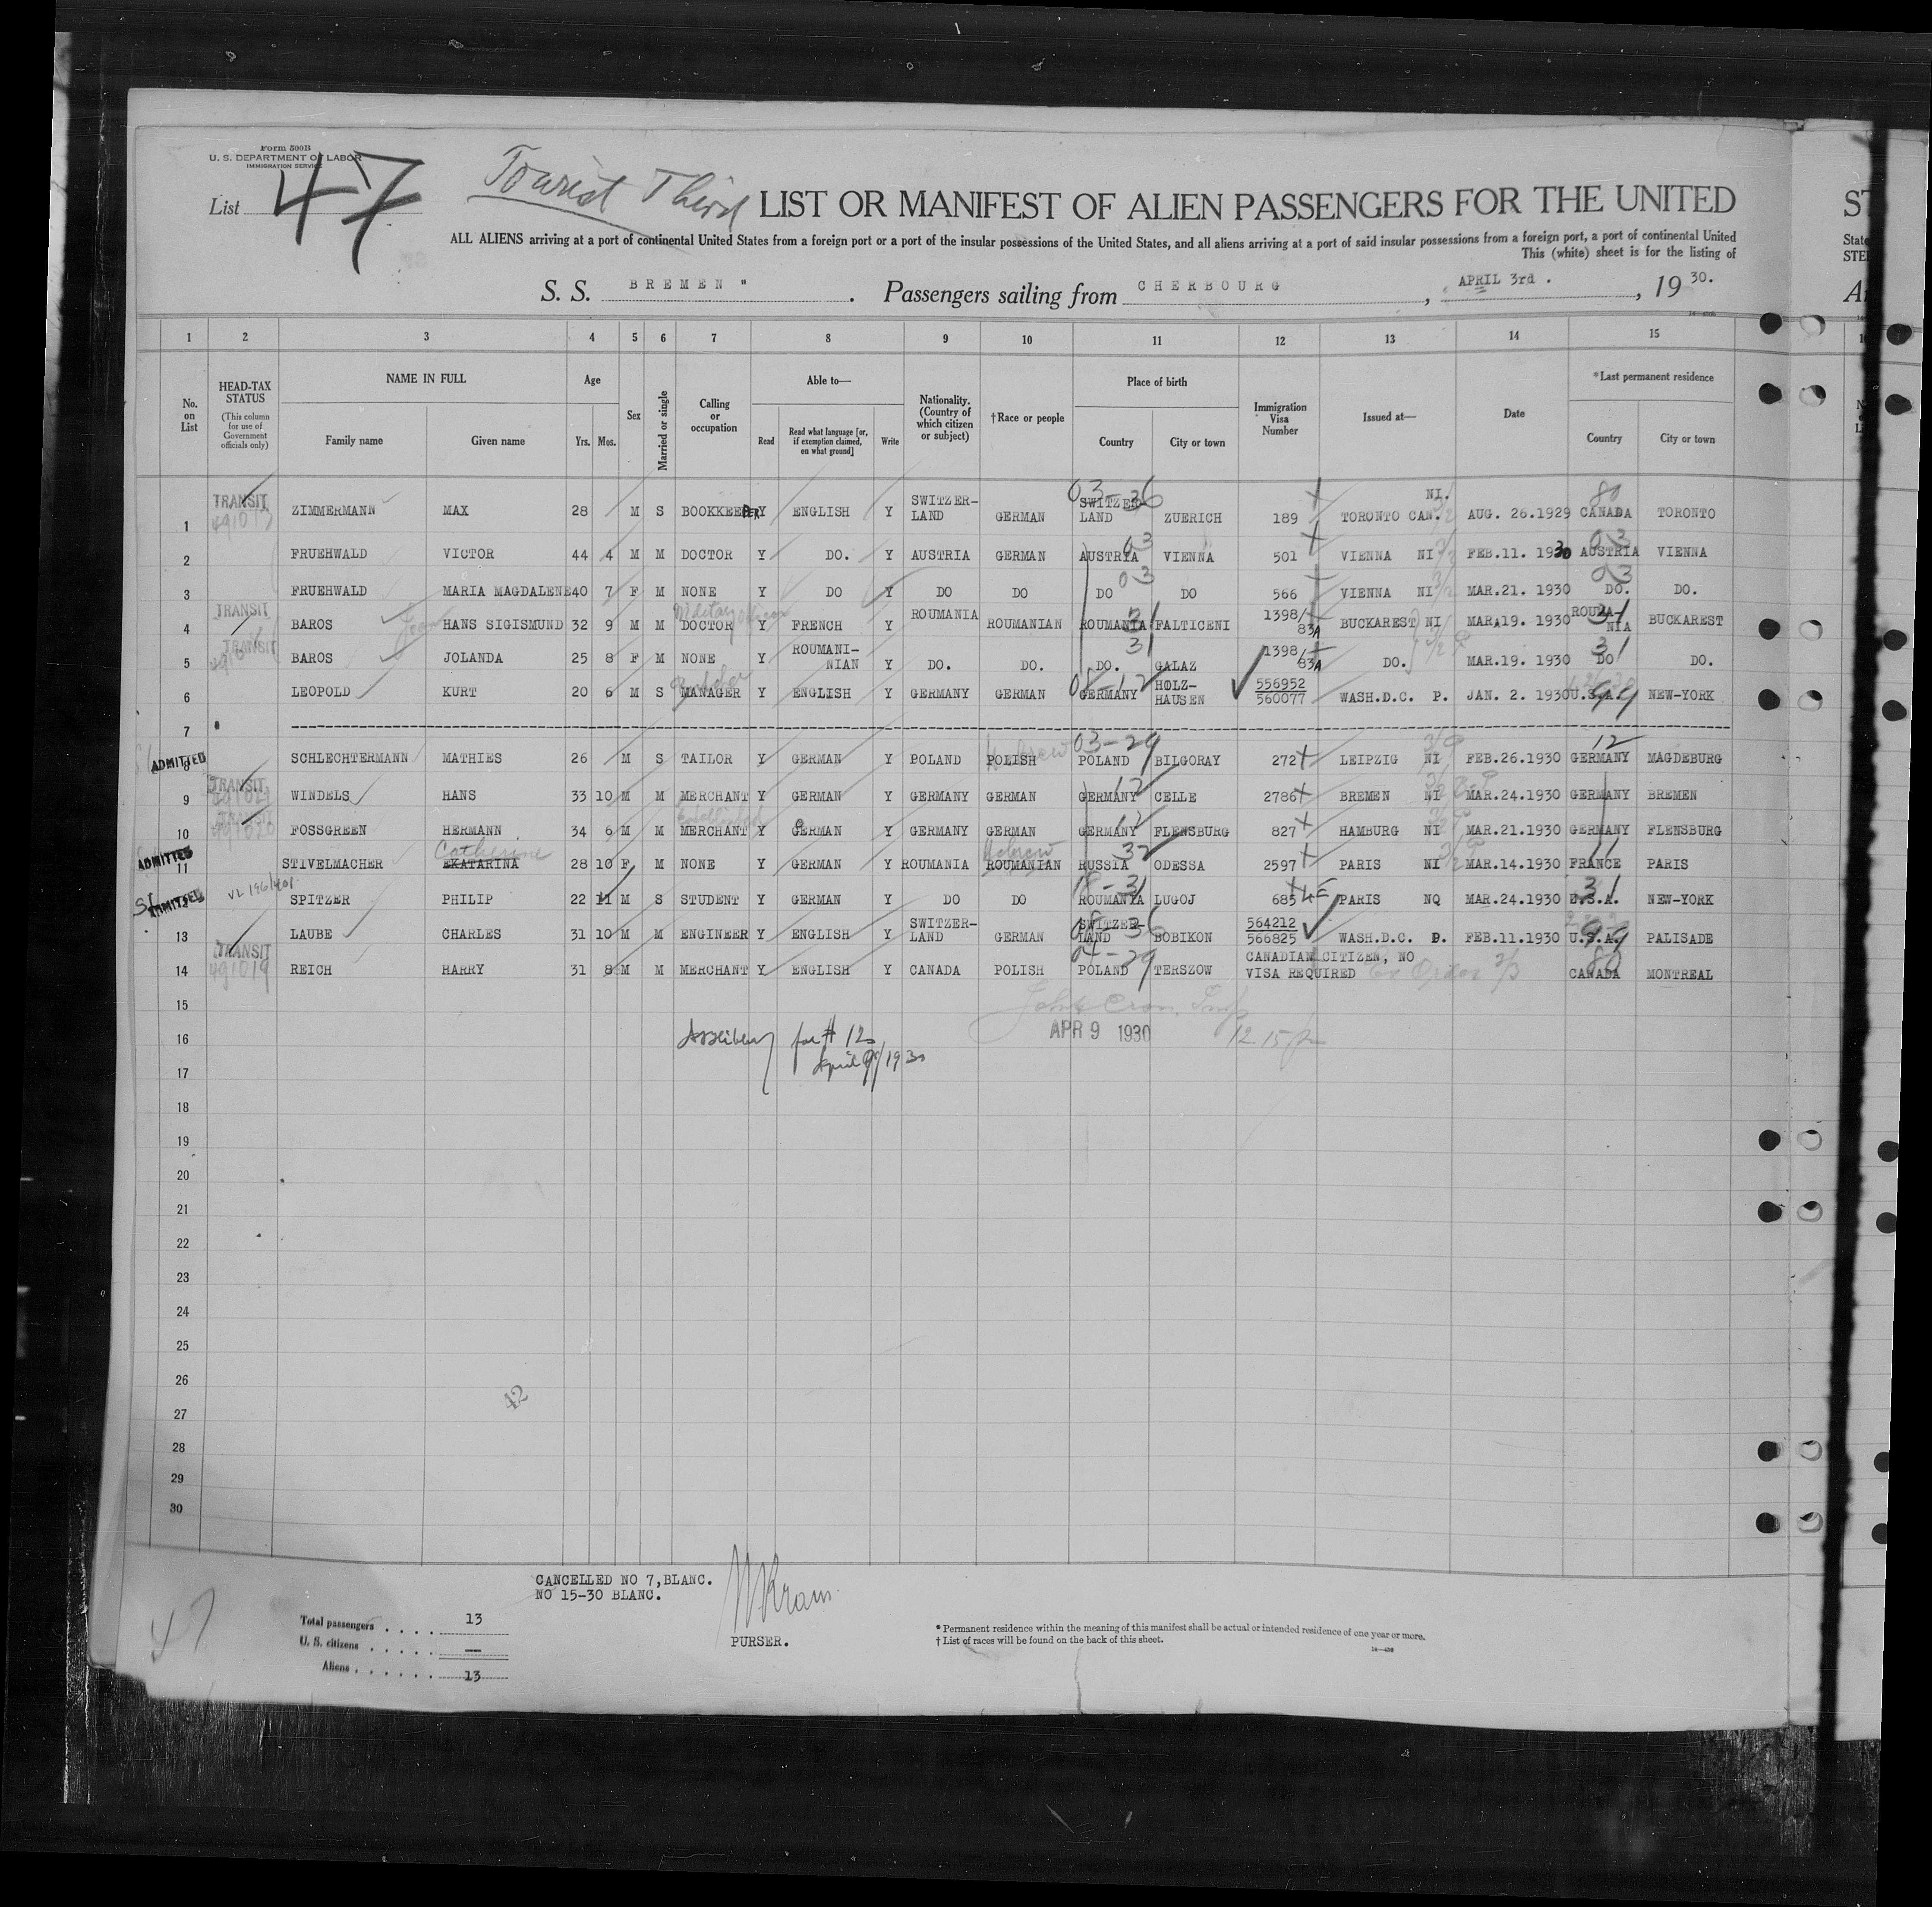 Form 500B
U. S. DEPARTMENT OF LABOR
IMMIGRATION SERVICE
List 47
Tourist Third LIST OR MANIFEST OF ALIEN PASSENGERS FOR THE UNITED
ALL ALIENS arriving at a port of continental United States from a foreign port or a port of the insular possessions of the United States, and all aliens arriving at a port of said insular possessions from a foreign port, a port of continental United
This (white) sheet is for the listing of
S. S. BREMEN " . Passengers sailing from CHERBOURG , APRIL 3rd . , 19 30.
1 2 3 4 5 6 7 8 9 10 11 12 13 14 15
No. on List
HEAD-TAX STATUS (This column for use of Government officials only)
NAME IN FULL Family name Given name
Age Yrs. Mos.
Sex
Married or single
Calling or occupation
Able to— Read Read what language [or, if exemption claimed, on what ground] Write
Nationality. (Country of which citizen or subject)
†Race or people
Place of birth Country City or town
Immigration Visa Number
Issued at—
Date
*Last permanent residence Country City or town
1 TRANSIT ZIMMERMANN MAX 28 M S BOOKKEEPER Y ENGLISH Y SWITZER-LAND GERMAN SWITZER-LAND 03-36 ZUERICH 189 TORONTO CAN. NI. AUG. 26.1929 CANADA 80 TORONTO
2 FRUEHWALD VICTOR 44 4 M M DOCTOR Y DO. Y AUSTRIA GERMAN AUSTRIA 03 VIENNA 501 VIENNA NI FEB.11. 1930 AUSTRIA 03 VIENNA
3 FRUEHWALD MARIA MAGDALENE 40 7 F M NONE Y DO Y DO DO DO 03 DO 566 VIENNA NI MAR.21. 1930 DO. 03 DO.
4 TRANSIT BAROS Jean HANS SIGISMUND 32 9 M M DOCTOR Military officer Y FRENCH Y ROUMANIA ROUMANIAN ROUMANIA 31 FALTICENI 1398/83A BUCKAREST NI MAR.19. 1930 ROUMA-NIA 31 BUCKAREST
5 TRANSIT BAROS JOLANDA 25 8 F M NONE Y ROUMANI-NIAN Y DO. DO. DO. 31 GALAZ 1398/83A DO. MAR.19. 1930 DO 31 DO.
6 LEOPOLD KURT 20 6 M S MANAGER Butcher Y ENGLISH Y GERMANY GERMAN GERMANY 08-12 HOLZ-HAUSEN 556952 560077 WASH.D.C. P. JAN. 2. 1930 U.S.A. 99 NEW-YORK
7
8 ADMITTED SCHLECHTERMANN MATHIES 26 M S TAILOR Y GERMAN Y POLAND POLISH Hebrew POLAND 03-29 BILGORAY 272 LEIPZIG NI FEB.26.1930 GERMANY 12 MAGDEBURG
9 TRANSIT WINDELS HANS 33 10 M M MERCHANT Y GERMAN Y GERMANY GERMAN GERMANY 12 CELLE 2786 BREMEN NI MAR.24.1930 GERMANY BREMEN
10 TRANSIT FOSSGREEN HERMANN 34 6 M M MERCHANT Y GERMAN Y GERMANY GERMAN GERMANY 12 FLENSBURG 827 HAMBURG NI MAR.21.1930 GERMANY FLENSBURG
11 ADMITTED STIVELMACHER Catherine EKATARINA 28 10 F M NONE Y GERMAN Y ROUMANIA ROUMANIAN Hebrew RUSSIA 32 ODESSA 2597 PARIS NI MAR.14.1930 FRANCE 11 PARIS
12 SI ADMITTED SPITZER PHILIP 22 11 M S STUDENT Y GERMAN Y DO DO ROUMANIA 18-31 LUGOJ 685 4E PARIS NQ MAR.24.1930 U.S.A. 31 NEW-YORK
13 LAUBE CHARLES 31 10 M M ENGINEER Y ENGLISH Y SWITZER-LAND GERMAN SWITZER-LAND 08-36 BOBIKON 564212 566825 WASH.D.C. P. FEB.11.1930 U.S.A. 99 PALISADE
14 TRANSIT 491019 REICH HARRY 31 8 M M MERCHANT Y ENGLISH Y CANADA POLISH POLAND 04-29 TERSZOW CANADIAN CITIZEN, NO VISA REQUIRED CANADA 80 MONTREAL
15
16 for # 12 APR 9 1930 12.15 p
April 9/1930
17
18
19
20
21
22
23
24
25
26
42
27
28
29
30
CANCELLED NO 7,BLANC.
NO 15-30 BLANC.
47
Total passengers . . . . 13
U. S. citizens . . . . . —
Aliens . . . . . . 13
PURSER.
* Permanent residence within the meaning of this manifest shall be actual or intended residence of one year or more.
† List of races will be found on the back of this sheet.